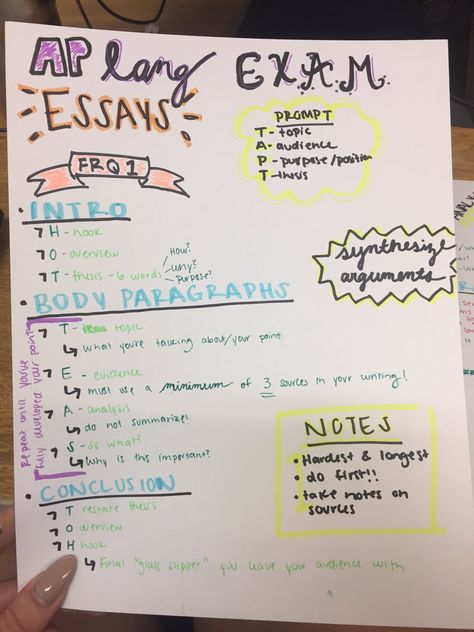 AP lang EXAM
ESSAYS
PROMPT
T - topic
A - audience
P - purpose/position
T - thesis
FRQ 1
• INTRO
H - hook
O - overview
T - thesis - 6 words
How?
Why?
Purpose?
synthesize
arguments
• BODY PARAGRAPHS
Repeat until you've
fully developed your point
T - topic
what you're talking about/your point
E - evidence
must use a minimum of 3 sources in your writing!
A - analysis
do not summarize!
S - so what?
why is this important?
NOTES
• Hardest & longest
• do first!!
• take notes on
sources
• CONCLUSION
T restate thesis
O overview
H hook
Final "glass slipper" you leave your audience with